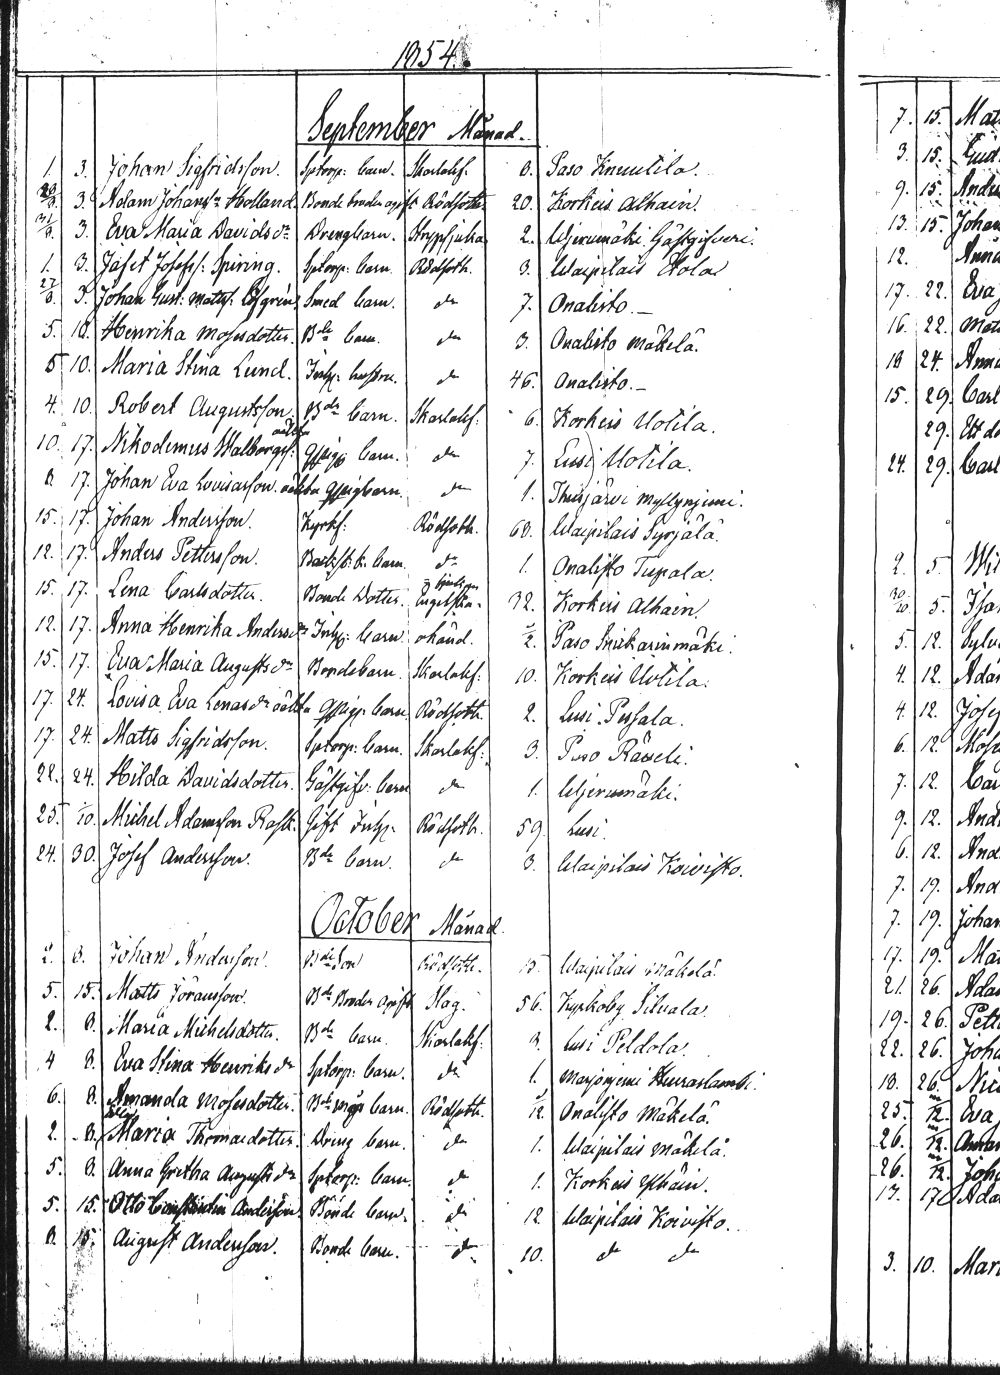 1854.
September Månad.
1. 3. Johan Sigfridsson. Sptorp: barn. Skarlakf. 8. Paso Knuutila.
29/8. 3. Adam Johans Holland. Bonde broder ogift Rödsoth. 20. Korkeis Alhain.
31/8. 3. Eva Maria Davidsdr Drengbarn. Strypsjuka 2. Ujerumäki Gästgifveri.
1. 3. Jafet Josefs: Spiring. Sptorp: barn. Rödsoth. 3. Waipilais
27/8. 3. Johan Gust: Matts: Löfgren, Smed barn. do 7. Onalisto. —
5. 10. Henrika Mosesdotter. Bde barn. do 3. Onalisto Mäkelä.
5 10. Maria Stina Lund. Inhy: hustru. do 46. Onalisto. —
4. 10. Robert Augustsson. Bde barn. Skarlakf. 6. Korkeis Uotila.
10. 17. Nikodemus Walborgs: barn. do 7. Lusi Uotila.
8. 17. Johan Eva Lovisasson. oäkta do 1. Thusjärvi Myllynjemi.
15. 17. Johan Andersson. Kyrkf: Rödsoth. 68. Waipilais Syrjälä.
12. 17. Anders Pettersson. barn. do 1. Onalisto Tupala.
15. 17. Lena Carlsdotter. Bonde Dotter. Engelska 32. Korkeis Alhain.
12. 17. Anna Henrika Andersdr Inhy: barn. okänd. Paso
15. 17. Eva Maria Augustsdr Bondebarn. Skarlakf: 10. Korkeis Uotila.
17. 24. Lovisa Eva Lenasdr oäkta barn. Rödsoth. 2. Lusi Pessala.
17. 24. Matts Sigfridsson. Sptorp: barn. Skarlakf: 3. Paso Räveli.
22. 24. Hilda Davidsdotter. Gästgifv: barn do 1. Ujerumäki.
25. 1/10. Michel Adamsson Rask. Gift Inhy: Rödsoth. 59. Lusi.
24. 30. Josef Andersson. Bde barn. do 3. Waipilais Koivisto.
October Månad.
2. 8. Johan Andersson. Bde Son Rödsoth. 15. Waipilais Mäkelä.
5. 15. Matts Göransson. Bde Broder ogift Slag. 56. Kyrkoby Silvala.
2. 8. Maria Michelsdotter. Bde barn. Skarlakf: 3. Lusi Peldola.
4 8. Eva Stina Henriksdr Sptorp: barn. do 1. Marjonjemi
6. 8. Amanda Mosesdotter. barn. Rödsoth. /12. Onalisto Mäkelä.
2. 8. Maria Thomasdotter. Dreng barn. do 1. Waipilais Mäkelä.
5. 8. Anna Gretha Augustsdr Sptorp: barn. do 1. Korkeis Ylhäin.
5. 15. Otto Constantin Andersson. Bonde barn. do 12. Waipilais Koivisto.
8. 15. August Andersson. Bonde barn. do 10. do do
7. 15. Mat
3. 15.
9. 15. Ande
13. 15. Johan
12. Anna
17. 22. Eva
16. 22. Mat
18 24. Anni
15. 29. Carl
29. Ett dö
24. 29. Carl
2. 5. Wil
30/10 5. Isa
5. 12. Sylv
4. 12. Ada
4. 12. Josef
6. 12. Mose
7. 12. Car
9. 12. And
6. 12. And
7. 19. And
7. 19. Johan
17. 19. Ma
21. 26. Ada
19. 26. Pett
22. 26. Joha
18. 26. Nic
25. /12. Eva
26. /12. Amma
26. /12. Joha
17. 17 Ada
3. 10. Mari